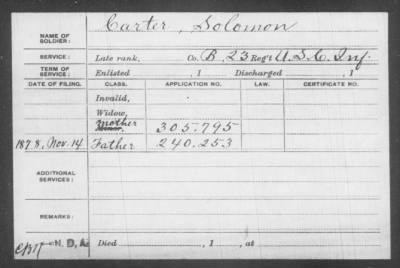 Carter, Solomon
NAME OF SOLDIER:
SERVICE: Late rank, Co. B, 23 Reg't U.S.C. Inf.
TERM OF SERVICE: Enlisted , 1 Discharged , 1
DATE OF FILING. CLASS. APPLICATION NO. LAW. CERTIFICATE NO.
Invalid,
Widow,
Mother
Minor, 305.795
1878, Nov. 14 Father 240.253
ADDITIONAL SERVICES:
REMARKS:
N. D. Died , 1 , at